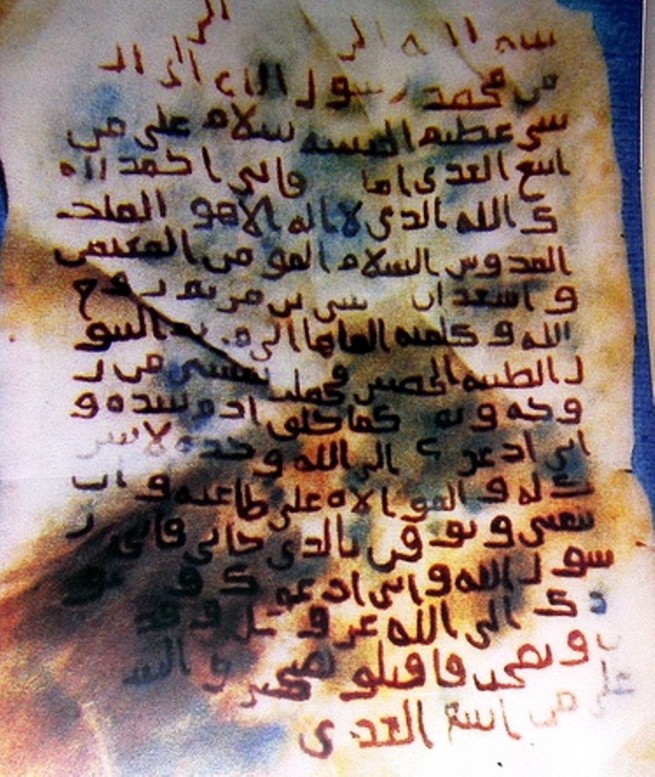 بسم الله الر
من محمد رسول الله الى ال
شى عظيم الحبشه سلام على من
اتبع الهدى اما فانى احمد الي
ك الله الذى لا اله الا هو الملك
القدوس السلام المومن المهيمن
و اشهد ان عيسى بن مريم روح
الله و كلمته القاها الى مريم البتو
ل الطيبه الحصينه فحملت بعيسى من ر
وحه و نفخه كما خلق ادم بيده و
انى ادعوك الى الله وحده لا شر
يك له و الموالاه على طاعته و ان
تتبعنى و توقن بالذى جانى فانى ر
سول الله و انى ادعوك و جنو
دك الى الله عز و جل و قد
و نصحت فاقبلوا نصيحتى و السلم
على من اتبع الهدى